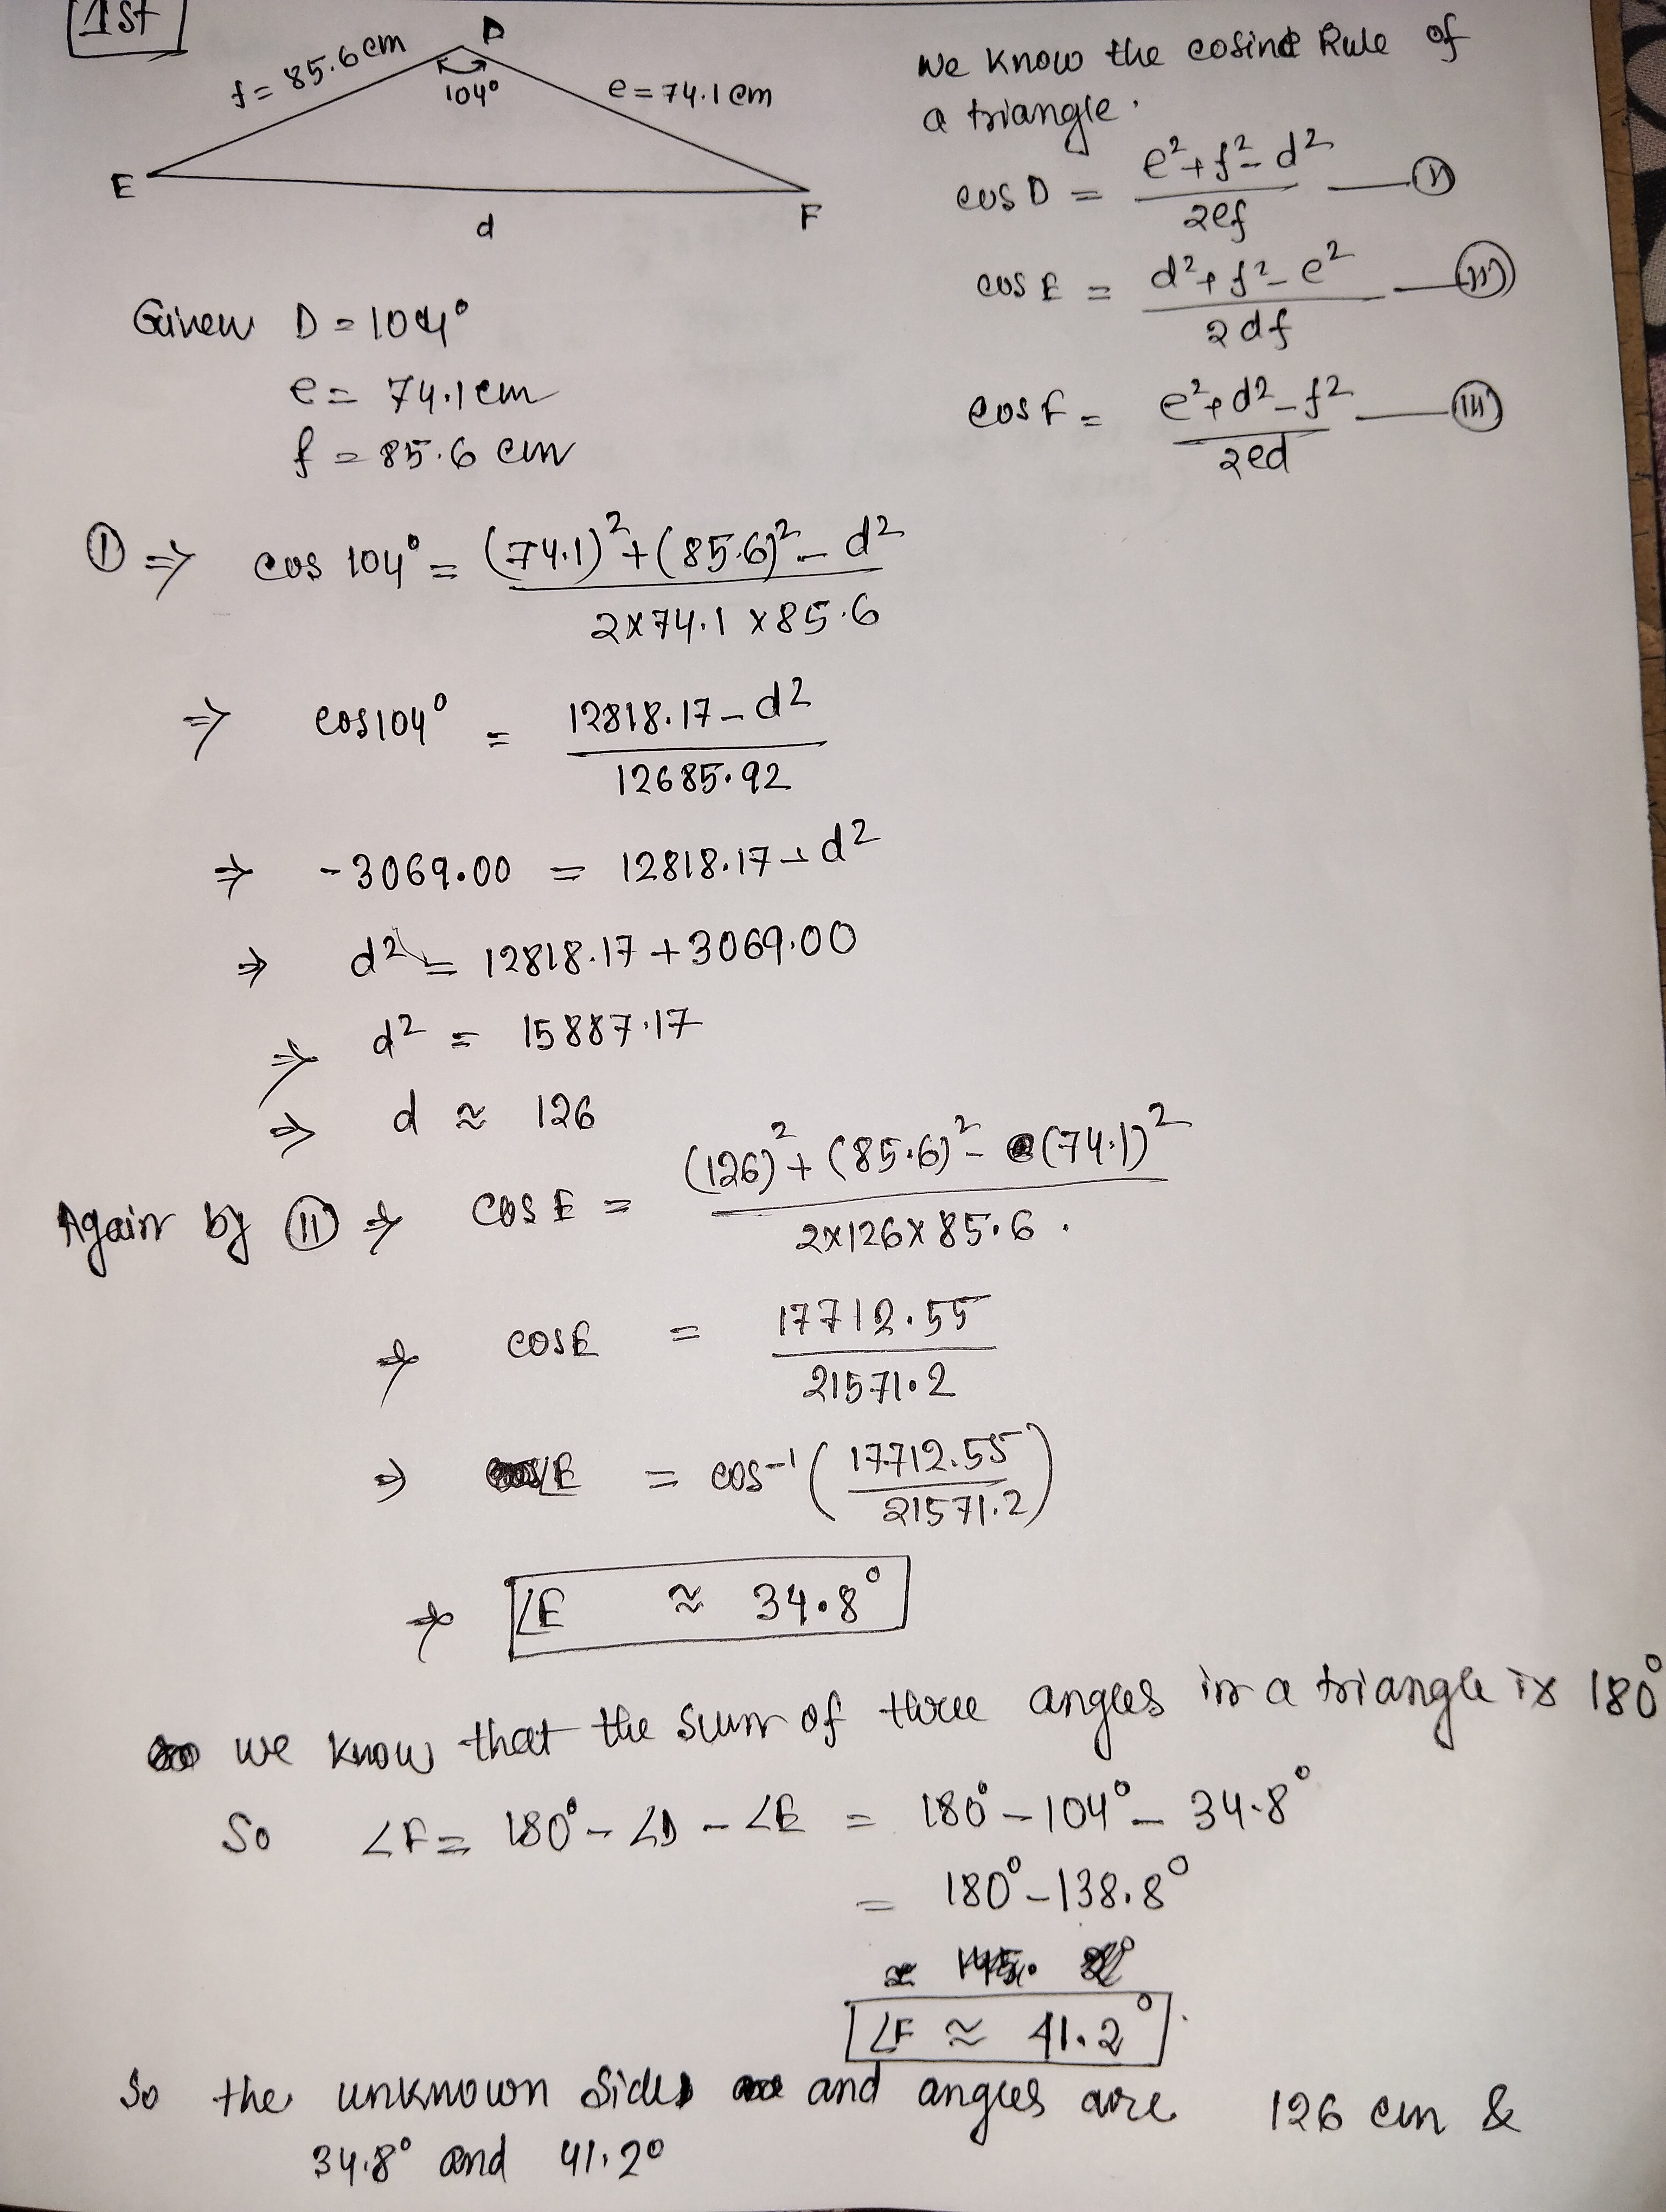 1st
D
f = 85.6 cm
104°
e = 74.1 cm
E
F
d
We know the cosine Rule of
a triangle.
cos D = (e² + f² - d²) / 2ef —— (i)
cos E = (d² + f² - e²) / 2df —— (ii)
cos F = (e² + d² - f²) / 2ed —— (iii)
Given D = 104°
e = 74.1 cm
f = 85.6 cm
(I) ⇒ cos 104° = ((74.1)² + (85.6)² - d²) / 2×74.1×85.6
⇒ cos 104° = (12818.17 - d²) / 12685.92
⇒ -3069.00 = 12818.17 - d²
⇒ d² = 12818.17 + 3069.00
⇒ d² = 15887.17
⇒ d ≈ 126
Again by (II) ⇒ cos E = ((126)² + (85.6)² - (74.1)²) / 2×126×85.6.
⇒ cos E = 17712.55 / 21571.2
⇒ ∠E = cos⁻¹ (17712.55 / 21571.2)
⇒ ∠E ≈ 34.8°
we know that the sum of three angles in a triangle is 180°
So ∠F = 180° - ∠D - ∠E = 180° - 104° - 34.8°
= 180° - 138.8°
∠F ≈ 41.2°.
So the unknown sides and angles are 126 cm &
34.8° and 41.2°